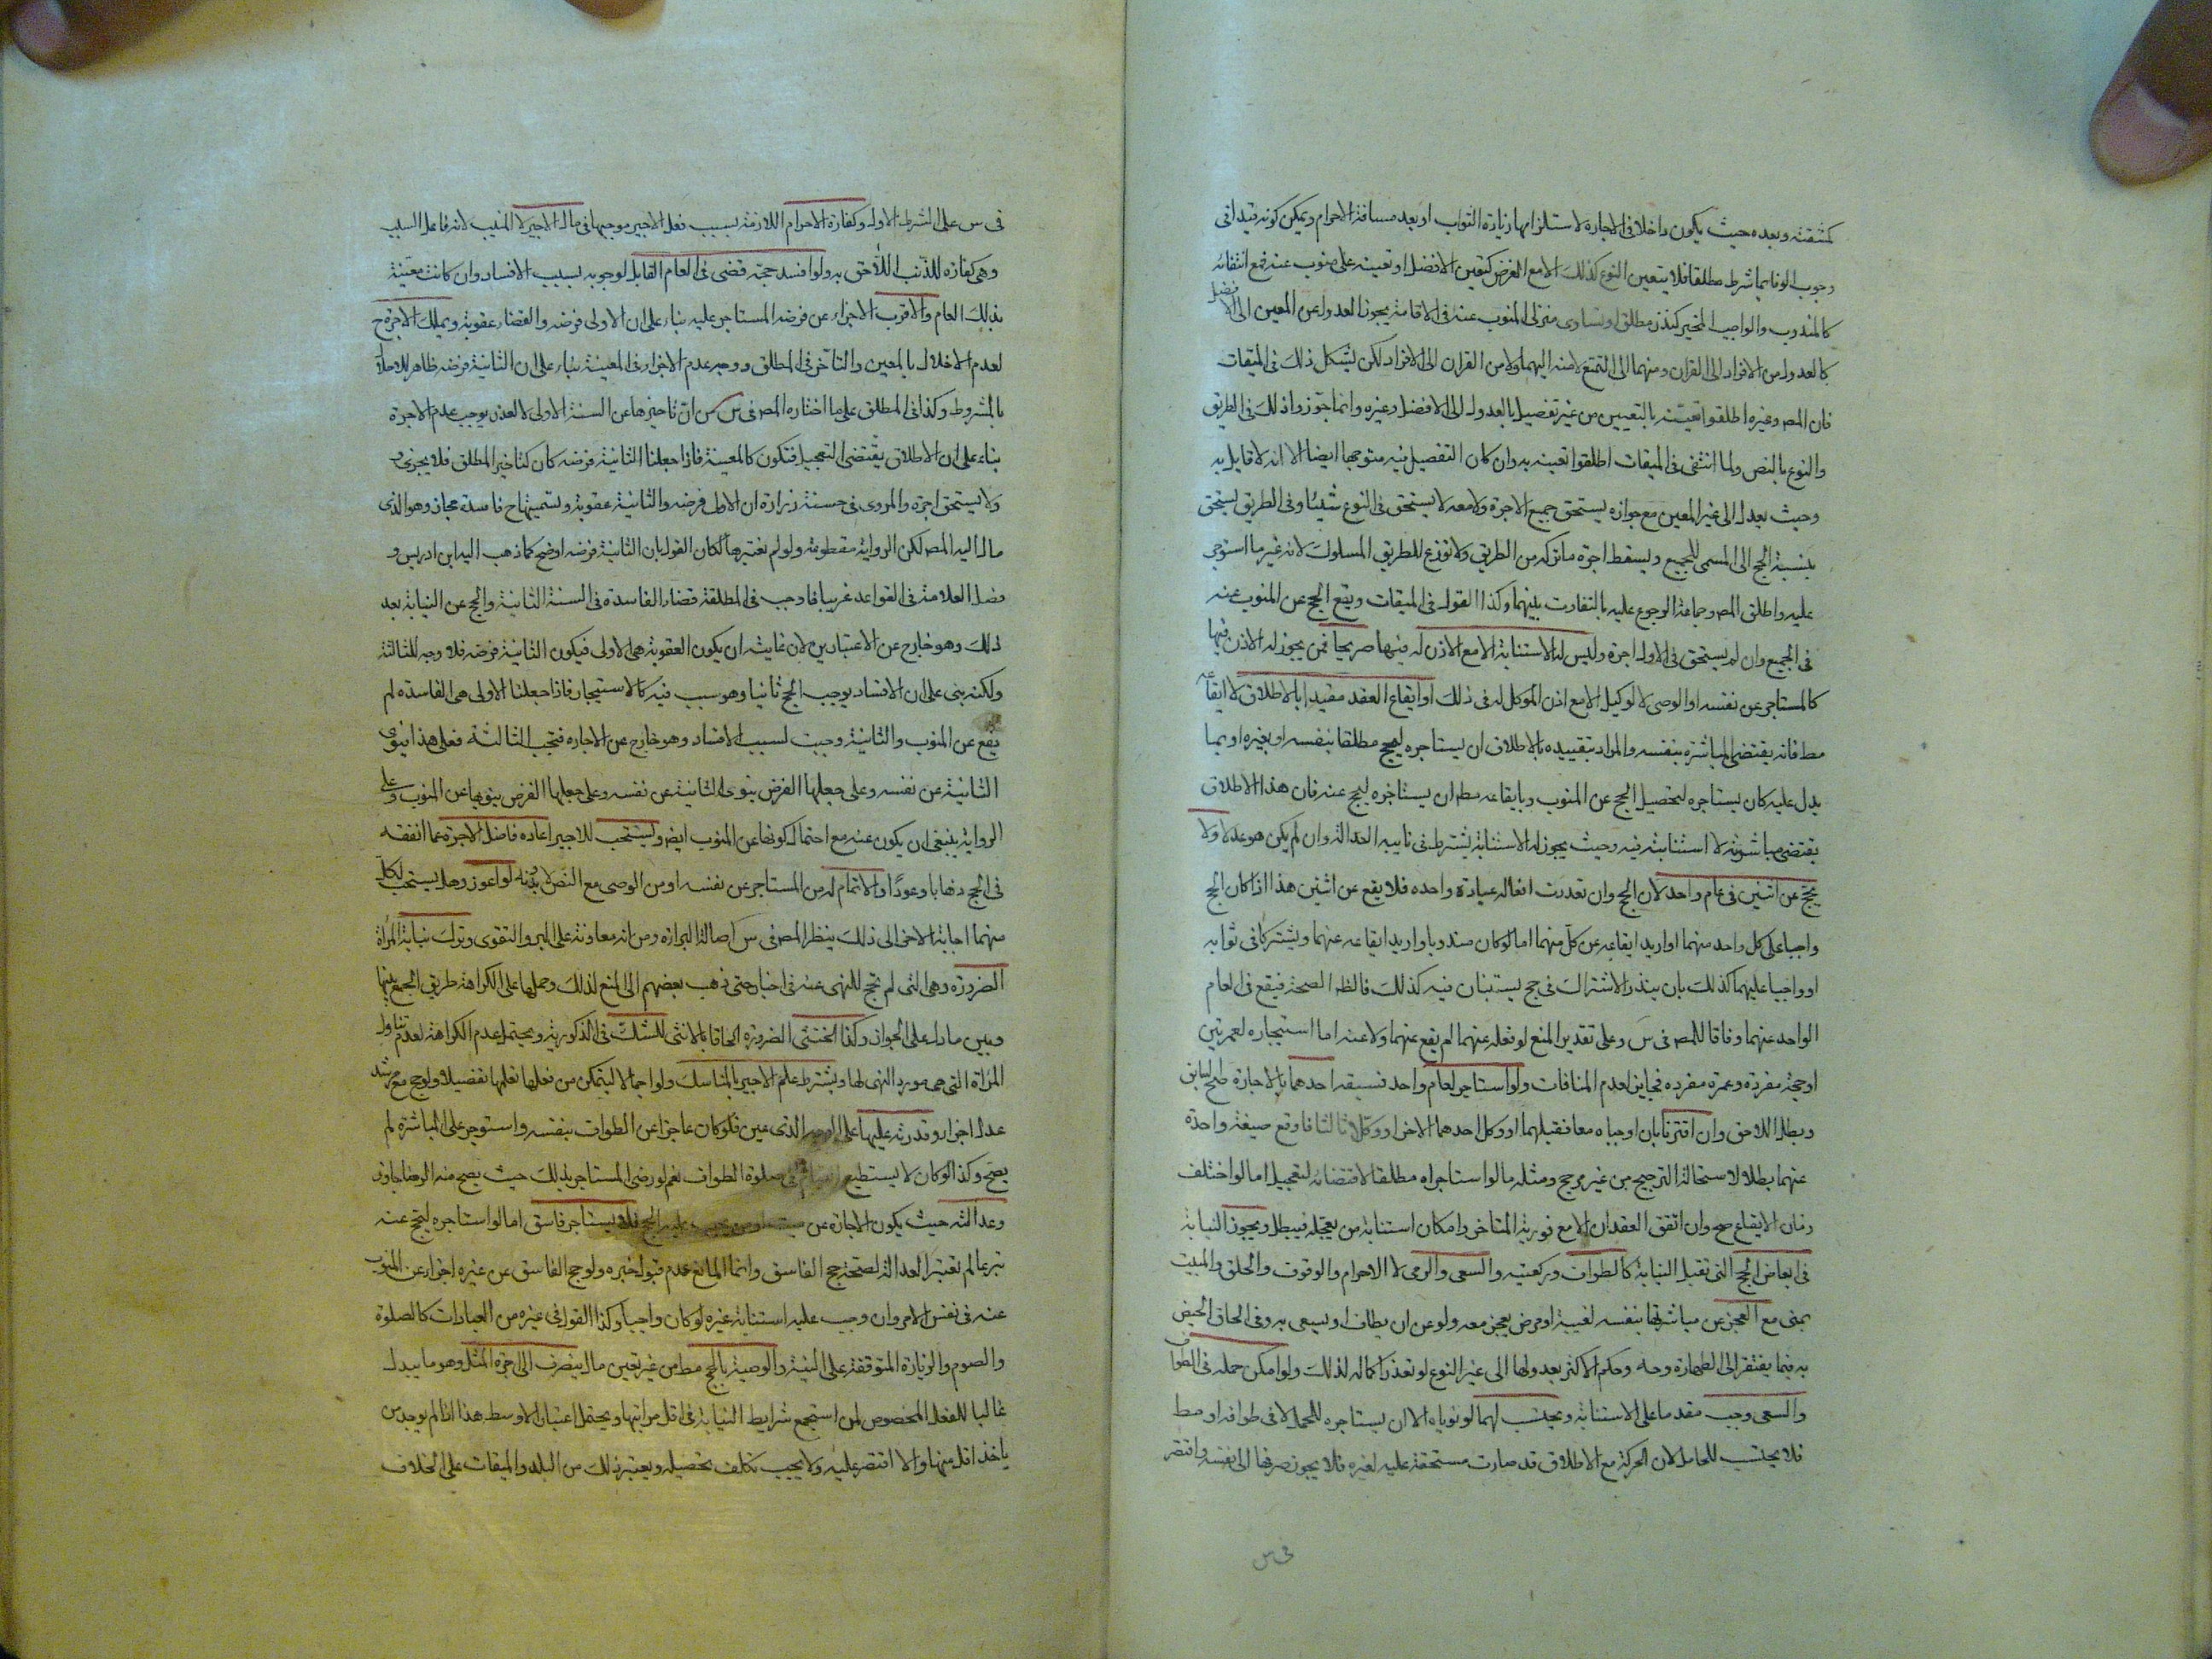 كمشقته وبعده حيث يكون داخلا في الاجارة لاستلزامها زيادة الثواب او بعد مسافة الاحرام ويمكن كونه قيدا في
وجوب الوفا بما شرط مطلقا فلا يتعين النوع كذلك الا مع الغرض كتعين الافضل او تعينه على منوب عنه فمع انتفائه
كالمندوب والواجب المخير كنذر مطلق او تساوى منزلى المنوب عنه في الاقامة يجوز العدول عن المعين الى الافضل
كالعدول من الافراد الى القران ومنهما الى التمتع لا منه اليهما ولا من القران الى الافراد لكن يشكل ذلك في الميقات
فان المص وغيره اطلقوا تعينه بالتعيين من غير تفصيل بالعدول الى الافضل وغيره وانما جوزوا ذلك في الطريق
والنوع بالنص ولما انتفى في الميقات اطلقوا تعينه به وان كان التفصيل فيه متوجها ايضا الا انه لا قايل به
وحيث يعدل الى غير المعين مع جوازه يستحق جميع الاجرة ولا معه لا يستحق في النوع شيئا وفي الطريق يستحق
بنسبة الحج الى المسمى للجميع ويسقط اجرة ما تركه من الطريق ولا توزع للطريق المسلوك لانه غير ما استوجر
عليه واطلق المص وجماعة الرجوع عليه بالتفاوت بينهما وكذا القول في الميقات ويقع الحج عن المنوب عنه
في الجميع وان لم يستحق في الاول اجرة وليس له الاستنابة الا مع الاذن له فيها صريحا ممن يجوز له الاذن فيها
كالمستاجر عن نفسه او الوصى لا لوكيل الا مع اذن الموكل له في ذلك او ايقاع العقد مقيدا بالاطلاق لا ايقاعه
مط فانه يقتضى المباشرة بنفسه والمراد بتقييده بالاطلاق ان يستاجره ليحج مطلقا بنفسه او بغيره او بما
يدل عليه كان يستاجره لتحصيل الحج عن المنوب وبايقاعه مط ان يستاجره ليحج عنه فان هذا الاطلاق
يقتضى مباشرته لا استنابته فيه وحيث يجوز له الاستنابة يشترط في نايبه العدالة وان لم يكن هو عدلا ولا
يحج عن اثنين في عام واحد لان الحج وان تعددت افعاله عبادة واحده فلا يقع عن اثنين هذا اذا كان الحج
واجبا على كل واحد منهما او اريد ايقاعه عن كل منهما اما لو كان مندوبا واريد ايقاعه عنهما ويشتركا في ثوابه
او واجبا عليهما كذلك بان ينذر الاشتراك في حج يستنيبان فيه كذلك فالظ الصحة فيقع في العام
الواحد عنهما وفاقا للمص في س وعلى تقدير المنع لو فعله عنهما لم يقع عنهما ولا عنه اما استيجاره لعمرتين
او حجة مفردة وعمرة مفرده فجايز لعدم المنافات ولو استاجر لعام واحد فسبقه احدهما بالاجارة صح السابق
وبطل اللاحق وان اقترنا بان اوجباه معا فقبلهما او وكل احدهما الاخر او وكلا ثالثا فاوقع صيغة واحدة
عنهما بطلا لاستحالة الترجيح من غير مرجح ومثله ما لو استاجراه مطلقا لاقتضائه لتعجيل اما لو اختلف
زمان الايقاع صح وان اتفق العقدان الا مع فورية المتاخر وامكان استنابة من يعجله فيبطل ويجوز النيابة
في ابعاض الحج التي تقبل النيابة كالطواف وركعتيه والسعى والرمى لا الاحرام والوقوف والحلق والمبيت
بمنى مع العجز عن مباشرتها بنفسه لغيبة او مرض يعجز معه ولو عن ان يطاف او يسعى به وفي الحاق الحيض
به فيما يفتقر الى الطهارة وجه وحكم الاكثر بعدولها الى غير النوع لو تعذر اكماله لذلك ولو امكن حمله في الطواف
والسعى وجب مقدما على الاستنابة ويحتسب لهما لو نوياه الا ان يستاجره للحمل لا في طوافه او مط
فلا يحتسب للحامل لان الحركة مع الاطلاق قد صارت مستحقة عليه لغيره فلا يجوز صرفها الى نفسه واقتصر
في س
في س على الشرط الاول وكفارة الاحرام اللازمة بسبب فعل الاجير موجبها في مال الاجير لا المنيب لانه فاعل السبب
وهي كفارة للذنب اللاحق به ولو افسد حجه قضى في العام القابل لوجوبه بسبب الافساد وان كانت معينة
بذلك العام والاقرب الاجزاء عن فرضه المستاجر عليه بناء على ان الاولى فرضه والقضاء عقوبة ويملك الاجرة ح
لعدم الاخلال بالمعين والتاخر في المطلق ووجه عدم الاجزاء في المعينة بناء على ان الثانية فرضه ظاهر للاخلال
بالمشروط وكذا في المطلق على ما اختاره المص في س من ان تاخيرها عن السنة الاولى لا لعذر يوجب عدم الاجرة
بناء على ان الاطلاق يقتضى التعجيل فتكون كالمعينة فاذا جعلنا الثانية فرضه كان كتاخير المطلق فلا يجزى
ولا يستحق اجرة والمروى في حسنة زرارة ان الاولى فرضه والثانية عقوبة وتسميتها ح فاسدة مجاز وهو الذي
مال اليه المص لكن الرواية مقطوعة ولو لم نعتبرها لكان القول بان الثانية فرضه اوضح كما ذهب اليه ابن ادريس و
فصل العلامة في القواعد غريبا فاوجب في المطلقة قضاء الفاسدة في السنة الثانية والحج عن النيابة بعد
ذلك وهو خارج عن الاعتبارين لان غايته ان يكون العقوبة هي الاولى فيكون الثانية فرضه فلا وجه للثالثة
ولكنه بنى على ان الافساد يوجب الحج ثانيا وهو سبب فيه كالاستيجار فاذا جعلنا الاولى هي الفاسدة لم
يقع عن المنوب والثانية وجبت بسبب الافساد وهو خارج عن الاجاره فتجب الثالثة فعلى هذا ينوى
الثانية عن نفسه وعلى جعلها الفرض ينوى الثانية عن نفسه وعلى جعلها الفرض ينويها عن المنوب وعلى
الرواية ينبغي ان يكون عنه مع احتمال كونها عن المنوب ايض ويستحب للاجير اعاده فاضل الاجرة عما انفقه
في الحج ذهابا وعودا والاتمام له من المستاجر عن نفسه او من الوصى مع النص لا بدونه لو اعوز وهل يستحب لكل
منهما اجابة الاخر الى ذلك ينظر المص في س اصالة البراءه ومن انه معاونة على البر والتقوى وترك نيابة المراة
الضرورة وهي التى لم تحج للنهى عنه في اخبار حتى ذهب بعضهم الى المنع لذلك وحملها على الكراهة طريق الجمع بينها
وبين ما دل على الجواز وكذا الخنثى الضرورة الحاقا بالانثى للشك في الذكورية ويحتمل عدم الكراهة لعدم تناول
المراة التي هي مورد النهى لها ويشترط علم الاجير بالمناسك ولو اجمالا ليتمكن من فعلها تعلمها تفصيلا ولو حج مع مرشد
عدل اجزا وقدرته عليها على الوجه الذى عين فلو كان عاجزا عن الطواف بنفسه واستوجر على المباشرة لم
يصح وكذا لو كان لا يستطيع القيام في صلوة الطواف نعم لو رضى المستاجر بذلك حيث يصح منه الرضا جاز
وعدالته حيث يكون الاجارة عن ميت او من يجب عليه الحج فلا يستاجر فاسق اما لو استاجره ليحج عنه
تبرعا لم تعتبر العدالة لصحة حج الفاسق وانما المانع عدم قبول خبره ولو حج الفاسق عن غيره اجزا عن المنوب
عنه في نفس الامر وان وجب عليه استنابة غيره لو كان واجبا وكذا القول في غيره من العبادات كالصلوة
والصوم والزيارة المتوقفة على النية والوصية بالحج مط من غير تعيين مال ينصرف الى اجرة المثل وهو ما يبذل
غالبا للفعل المخصوص لمن استجمع شرايط النيابة في اقل مراتبها ويحتمل اعتبار الاوسط هذا اذا لم يوجد من
ياخذ اقل منها والا اقتصر عليه ولا يجب تكلف تحصيله ويعتبر ذلك من البلد والميقات على الخلاف